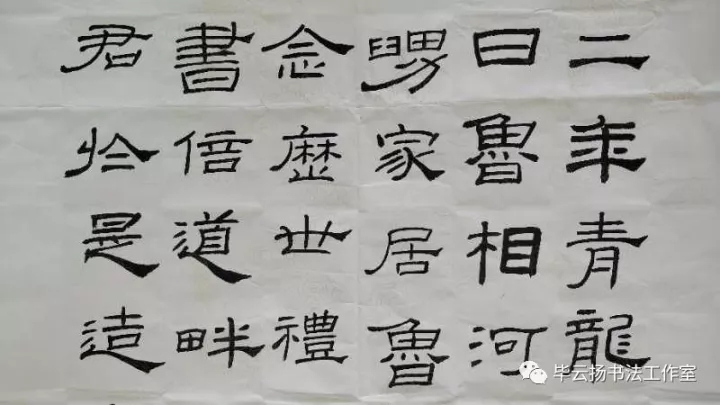 二年青龍
曰魯相河
舅家居魯
念歷世禮
書倍道畔
君於是造
毕云扬书法工作室